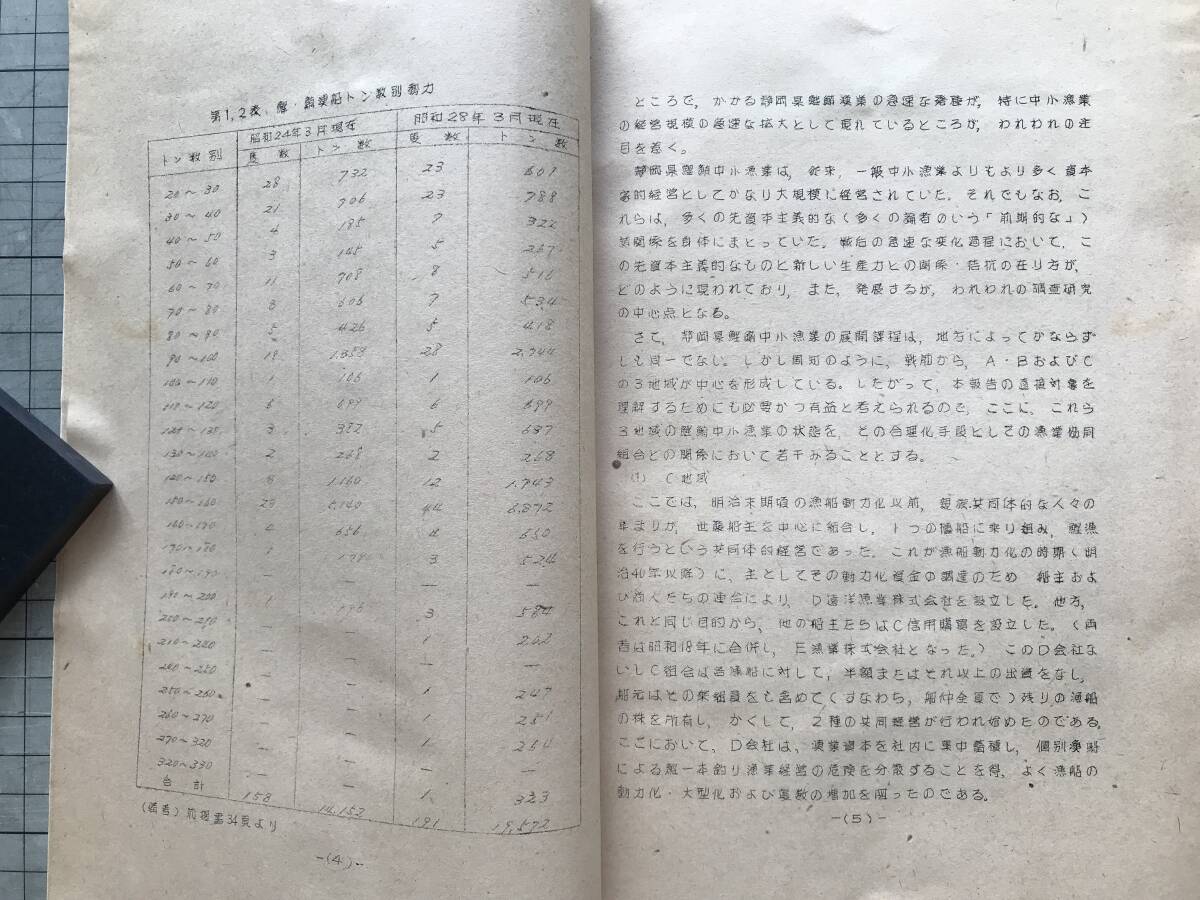 第1,2表、鰹・鮪漁船トン数別勢力
昭和24年3月現在 昭和28年3月現在
トン数別 隻数 トン数 隻数 トン数
20~30 28 732 23 607
30~40 21 706 23 788
40~50 4 185 7 322
50~60 3 145 5 267
60~70 11 708 8 516
70~80 8 606 7 534
80~90 5 426 5 418
90~100 19 28
100~110 1 106 1 106
110~120 6 699 6 699
120~135 3 382 5 637
2 268 2 268
8 1,160 12 1,743
23 44 6,872
4 656 4 650
1 3 524
— — — —
1 196 3 584
— — 1 202
210~220 — — — —
— — 1 247
250~260 — — 1 251
260~270 — — 1 264
270~320 — — — —
320~330 — — 1 323
合計 158 14,152 191 19,572
(備考)前掲書34頁より
-(4)-
ところで,かかる静岡県鰹鮪漁業の急速な発展が,特に中小漁業
の経営規模の急速な拡大として現れているところが,われわれの注
目を惹く。
静岡県鰹鮪中小漁業は,従来,一般中小漁業よりもより多く資本
家的経営としてかなり大規模に経営されていた。それでもなお,こ
れらは,多くの先資本主義的な(多くの論者のいう「前期的な」)
諸関係を身体にまとっていた。戦后の急速な変化過程において,こ
の先資本主義的なものと新しい生産力との関係・拮抗の在り方が,
どのように現われており,また,発展するか,われわれの調査研究
の中心点となる。
さて,静岡県鰹鮪中小漁業の展開課程は,地方によってかならず
しも同一でない。しかし周知のように,戦前から,A・BおよびC
の3地域が中心を形成している。したがって,本報告の直接対象を
理解するためにも必要かつ有益と考えられるので,ここに,これら
3地域の鰹鮪中小漁業の状態を,その合理化手段としての漁業協同
組合との関係において若干みることとする。
(1) C地域
ここでは,明治末期頃の漁船動力化以前,親族共同体的な人々の
集まりが,世襲船主を中心に結合し,1つの櫓船に乗り組み,鰹漁
を行うという共同体的経営であった。これが漁船動力化の時期(明
治40年以降)に,主としてその動力化資金の調達のため 船主およ
び商人たちの連合により,D遠洋漁業株式会社を設立した。他方,
これと同じ目的から,他の船主たちはC信用購買を設立した。(両
者は昭和18年に合併し,E漁業株式会社となった。)このD会社な
いしC組合は各漁船に対して,半額またはそれ以上の出資をなし,
船元はその乗組員をも含めて(すなわち,船仲全員で)残りの漁船
の株を所有し,かくして,2種の共同経営が行われ始めたのである。
ここにおいて,D会社は,漁業資本を社内に集中蓄積し,個別漁船
による鰹一本釣り漁業経営の危険を分散することを得,よく漁船の
動力化・大型化および隻数の増加を図ったのである。
-(5)-